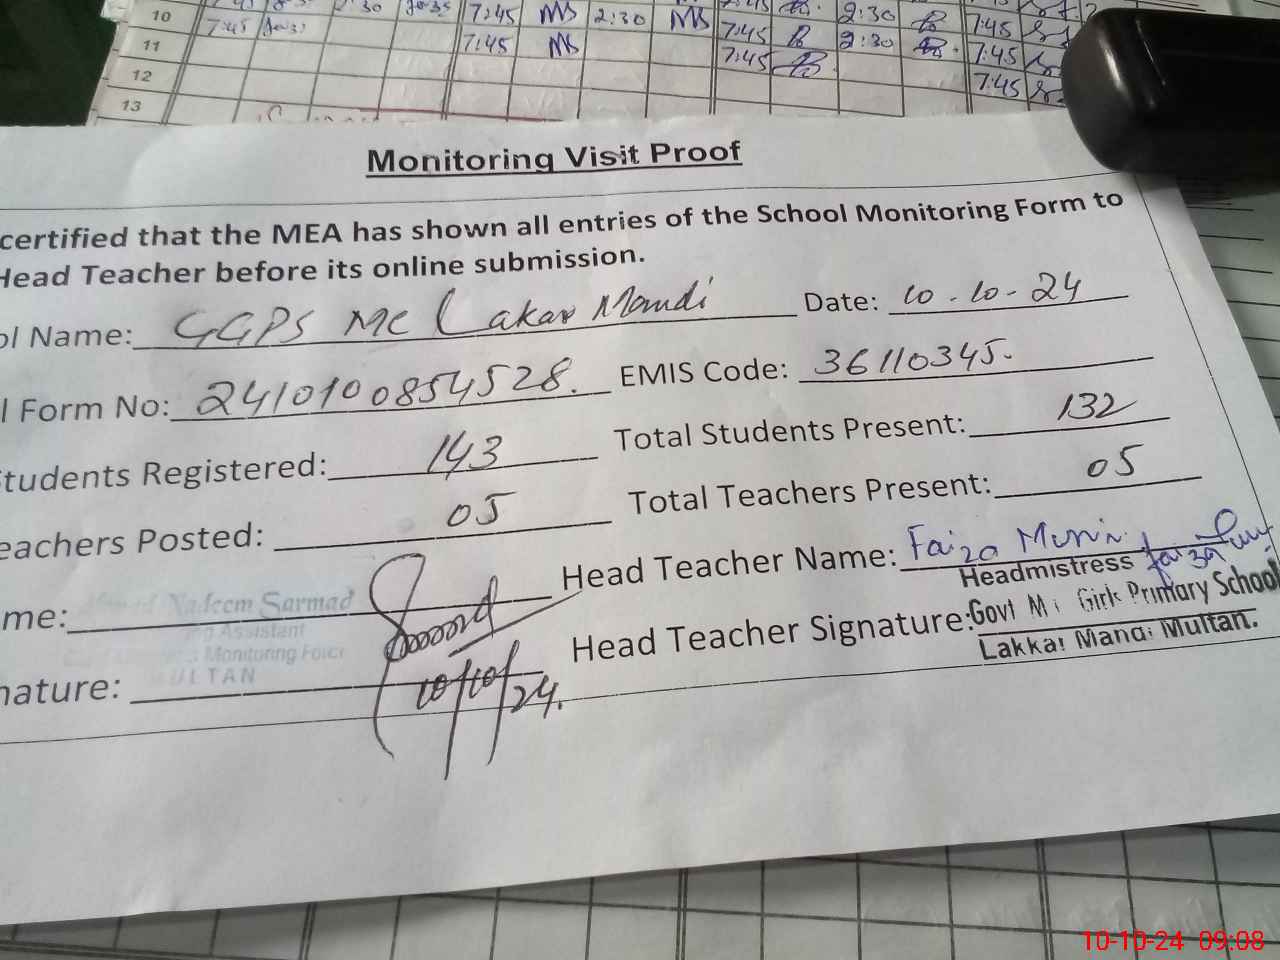 10 7:45 7:45 MS 2:30 MS 7:45 2:30 7:45
11 7:45 MS 7:45 2:30 7:45
12 7:45 7:45
13
Monitoring Visit Proof
certified that the MEA has shown all entries of the School Monitoring Form to
Head Teacher before its online submission.
ol Name: GGPS MC Lakar Mandi Date: 10-10-24
l Form No: 2410100854528. EMIS Code: 36110345.
tudents Registered: 143 Total Students Present: 132
eachers Posted: 05 Total Teachers Present: 05
me: Nadeem Sarmad Head Teacher Name: Faiza Munir
Assistant Headmistress
Monitoring Force Head Teacher Signature: Govt M Girls Primary School
nature: MULTAN Lakkar Mandi Multan.
10/10/24.
10-10-24 09:08